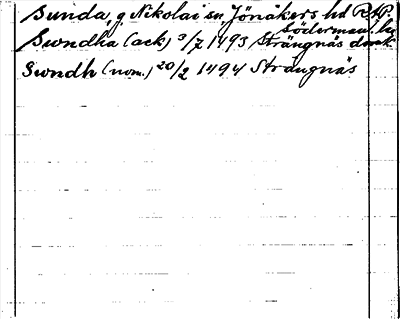 Sunda, g Nikolai sn, Jönåkers hd R.AP.
Söderman. ln
Swndha (ack) 3/7 1493 Strängnäs domk.
Swndh (nom.) 20/2 1494 Strängnäs